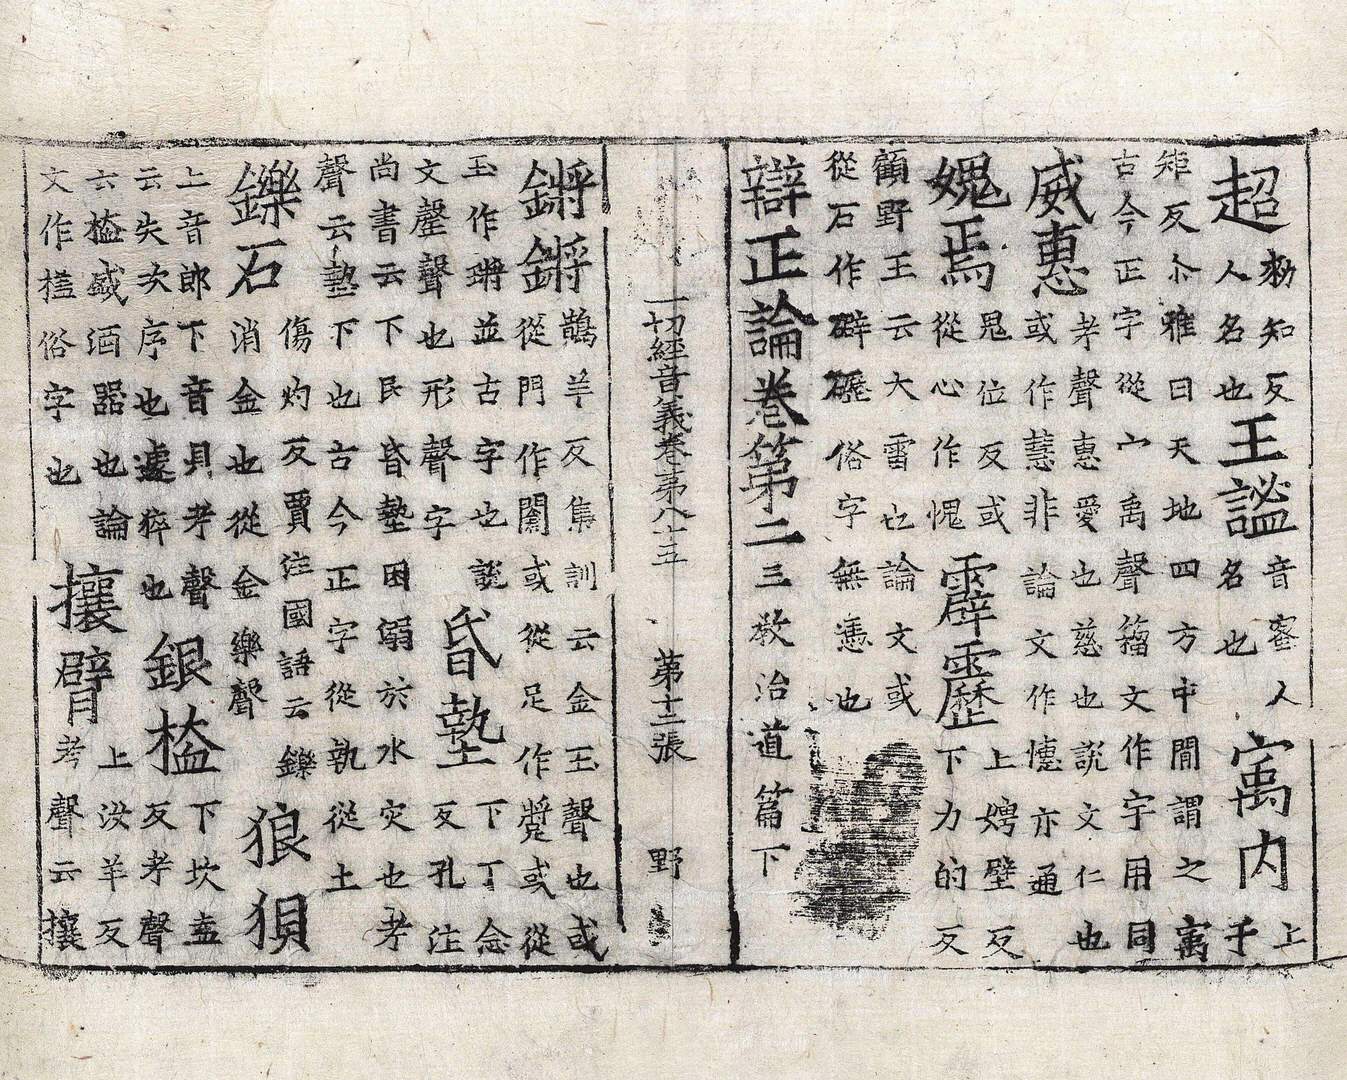 超勑知反人名也王謐音蜜人名也㝢内上于
矩反尒雅曰天地四方中間謂之㝢
古今正字從宀禹聲籀文作宇用同
威惠考聲惠愛也慈也說文仁也或作慧非論文作憓亦通
媿焉鬼位反或從心作愧霹靂上娉壁反下力的反
顧野王云大雷也論文或
從石作礔礰俗字無憑也
辯正論卷第二三教治道篇下
一切經音義卷苐八十五 苐十二張 野
鏘鏘鵲羊反集訓云金玉聲也或從門作闛或從足作蹡或從
玉作瑲並古字也說
文鏧聲也形聲字昏墊下丁念反孔注
尚書云下民昏墊困溺於水灾也考
聲云墊下也古今正字從執從土
鑠石傷灼反賈注國語云鑠消金也從金樂聲狼狽
上音郎下音貝考聲
云失次序也遽猝也銀榼下坎盍反考聲
云榼盛酒器也論
文作榼俗字也攘臂上汝羊反考聲云攘